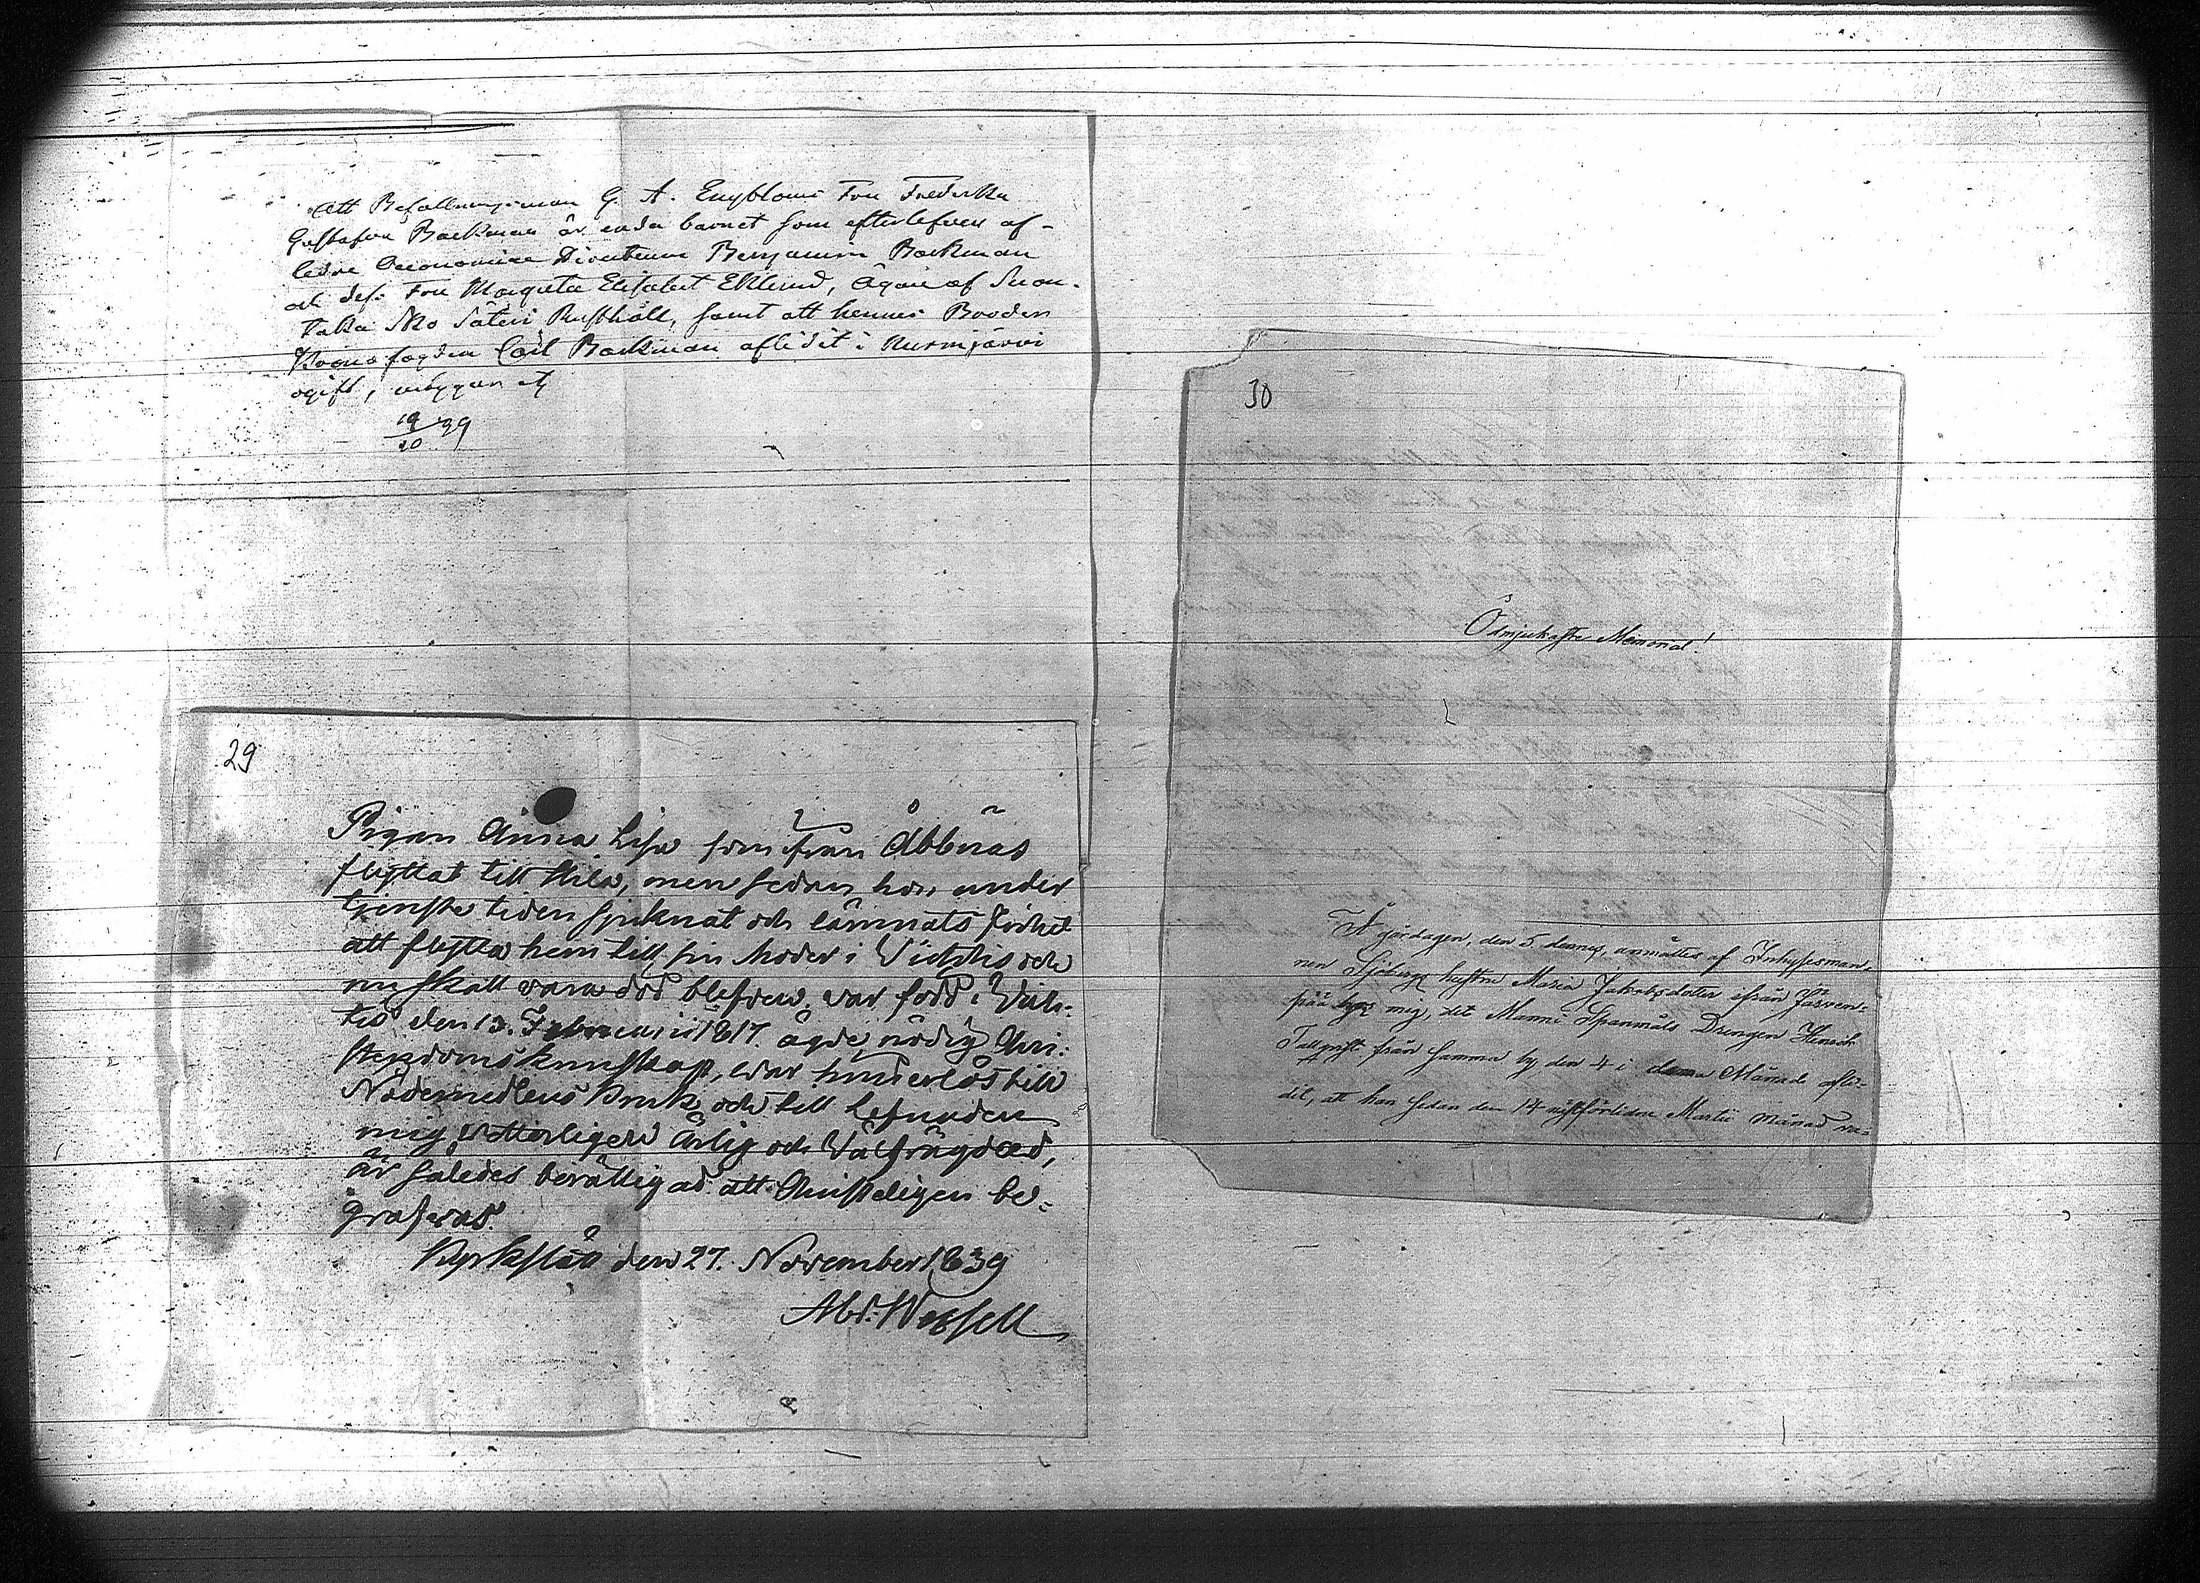 Att Befallningsman G. A. Engbloms Fru Fredrika
Gustafva Backman är enda barnet som efterlefver af-
ledne Oeconomiae Directeuren Benjamin Backman
och dess Fru Margreta Elisabet Eklund, Ägare af Suon-
taka Sko Säteri Rusthåll, samt att hennes Broder
Kronofogden Carl Backman aflidit i Nurmijärvi
ogift, intygar
19/10 39
29
Pigan Anna Lisa som från Åbbnäs
flyttat till Kila, men sedan hon under
tjenste tiden sjuknat och lämnats frihet
att flytta hem till sin Moder i Vichtis och
nu skall vara död blefven. var född i Vich-
tis den 13. Februarii 1817. ägde nödig Chri-
stendoms kunskap, war hinderlös till
Nådemedlens bruk och till Lefnaden
mig vetterligen ärlig och Välfrägdad,
är således berättigad att Christeligen be-
grafwas.
Kyrkslätt den 27. November 1839
Abr. Wessell
30
Ödmjukaste Memorial!
I gårdagen, den 5 dennes, anmältes af Inhysesman-
nen Sjöbergs hustru Maria Jakobsdotter ifrån Järven-
pää hos mig, det Manns Spanmåls Drengen Henrik
Tallqvist från samma by den 4 i denna Månad afli-
dit, att han sedan den 14 nästförlidne Martii månad va-